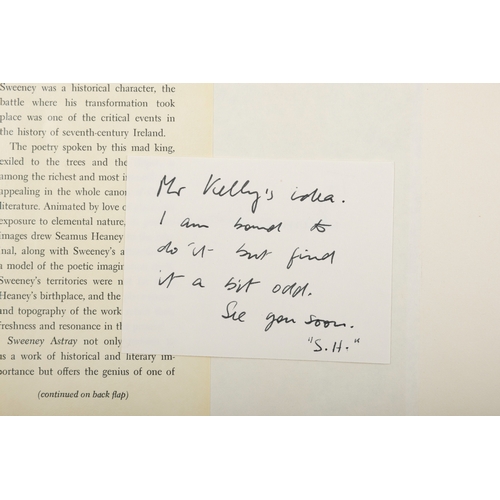 Sweeney was a historical character, the
battle where his transformation took
place was one of the critical events in
the history of seventh-century Ireland.
The poetry spoken by this mad king,
exiled to the trees and the
among the richest and most i
appealing in the whole canon
literature. Animated by love o
exposure to elemental nature,
images drew Seamus Heaney
nal, along with Sweeney's a
a model of the poetic imagin
Sweeney's territories were n
Heaney's birthplace, and the
and topography of the work
freshness and resonance in th
Sweeney Astray not only
us a work of historical and literary im-
portance but offers the genius of one of
(continued on back flap)
Mr Kelly's idea.
I am bound to
do it but find
it a bit odd.
See you soon.
"S.H."